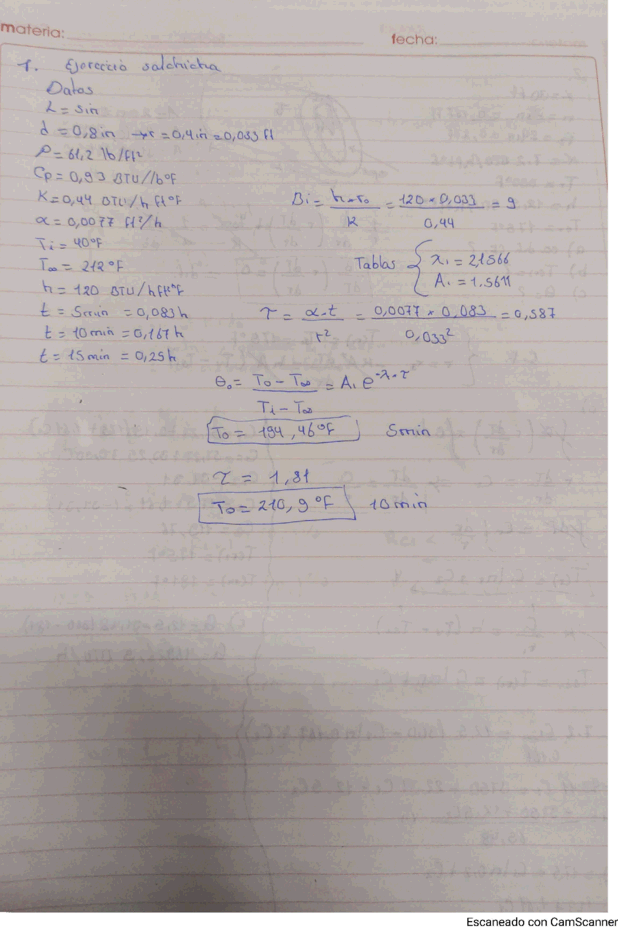 materia:
fecha:
1. Ejercicio salchicha
Datos
L = 5in
d = 0,8in → r = 0,4in = 0,033 ft
ρ = 61,2 lb/ft²
Cp = 0,93 BTU/lb°F
K = 0,44 BTU/h ft°F
α = 0,0077 ft²/h
Ti = 40°F
T∞ = 212°F
h = 120 BTU/hft²°F
t = 5min = 0,083h
t = 10min = 0,167h
t = 15min = 0,25h
Bi = h·r₀ / K = 120 × 0,033 / 0,44 = 9
Tablas { λ₁ = 2,1566
A₁ = 1.5611
τ = α·t / r² = 0,0077 × 0,083 / 0,033² = 0,587
θ₀ = T₀ - T∞ / Ti - T∞ = A₁ e^-λ·τ
T₀ = 194,46°F 5min
τ = 1,81
T₀ = 210,9°F 10min
Escaneado con CamScanner